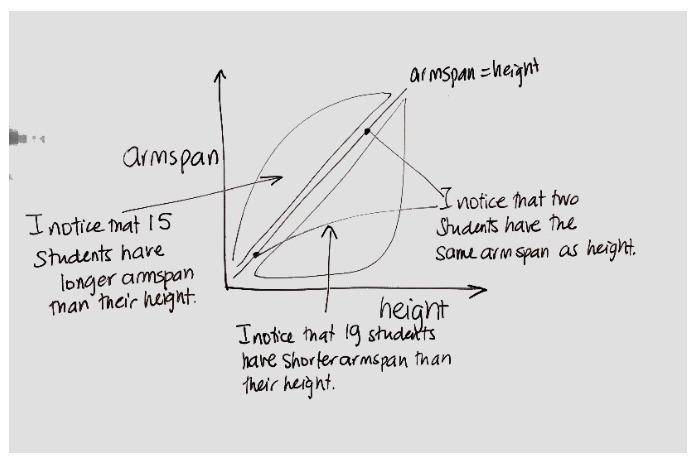 armspan = height
armspan
I notice that 15
students have
longer armspan
than their height.
I notice that two
students have the
same armspan as height.
height
I notice that 19 students
have shorter armspan than
their height.